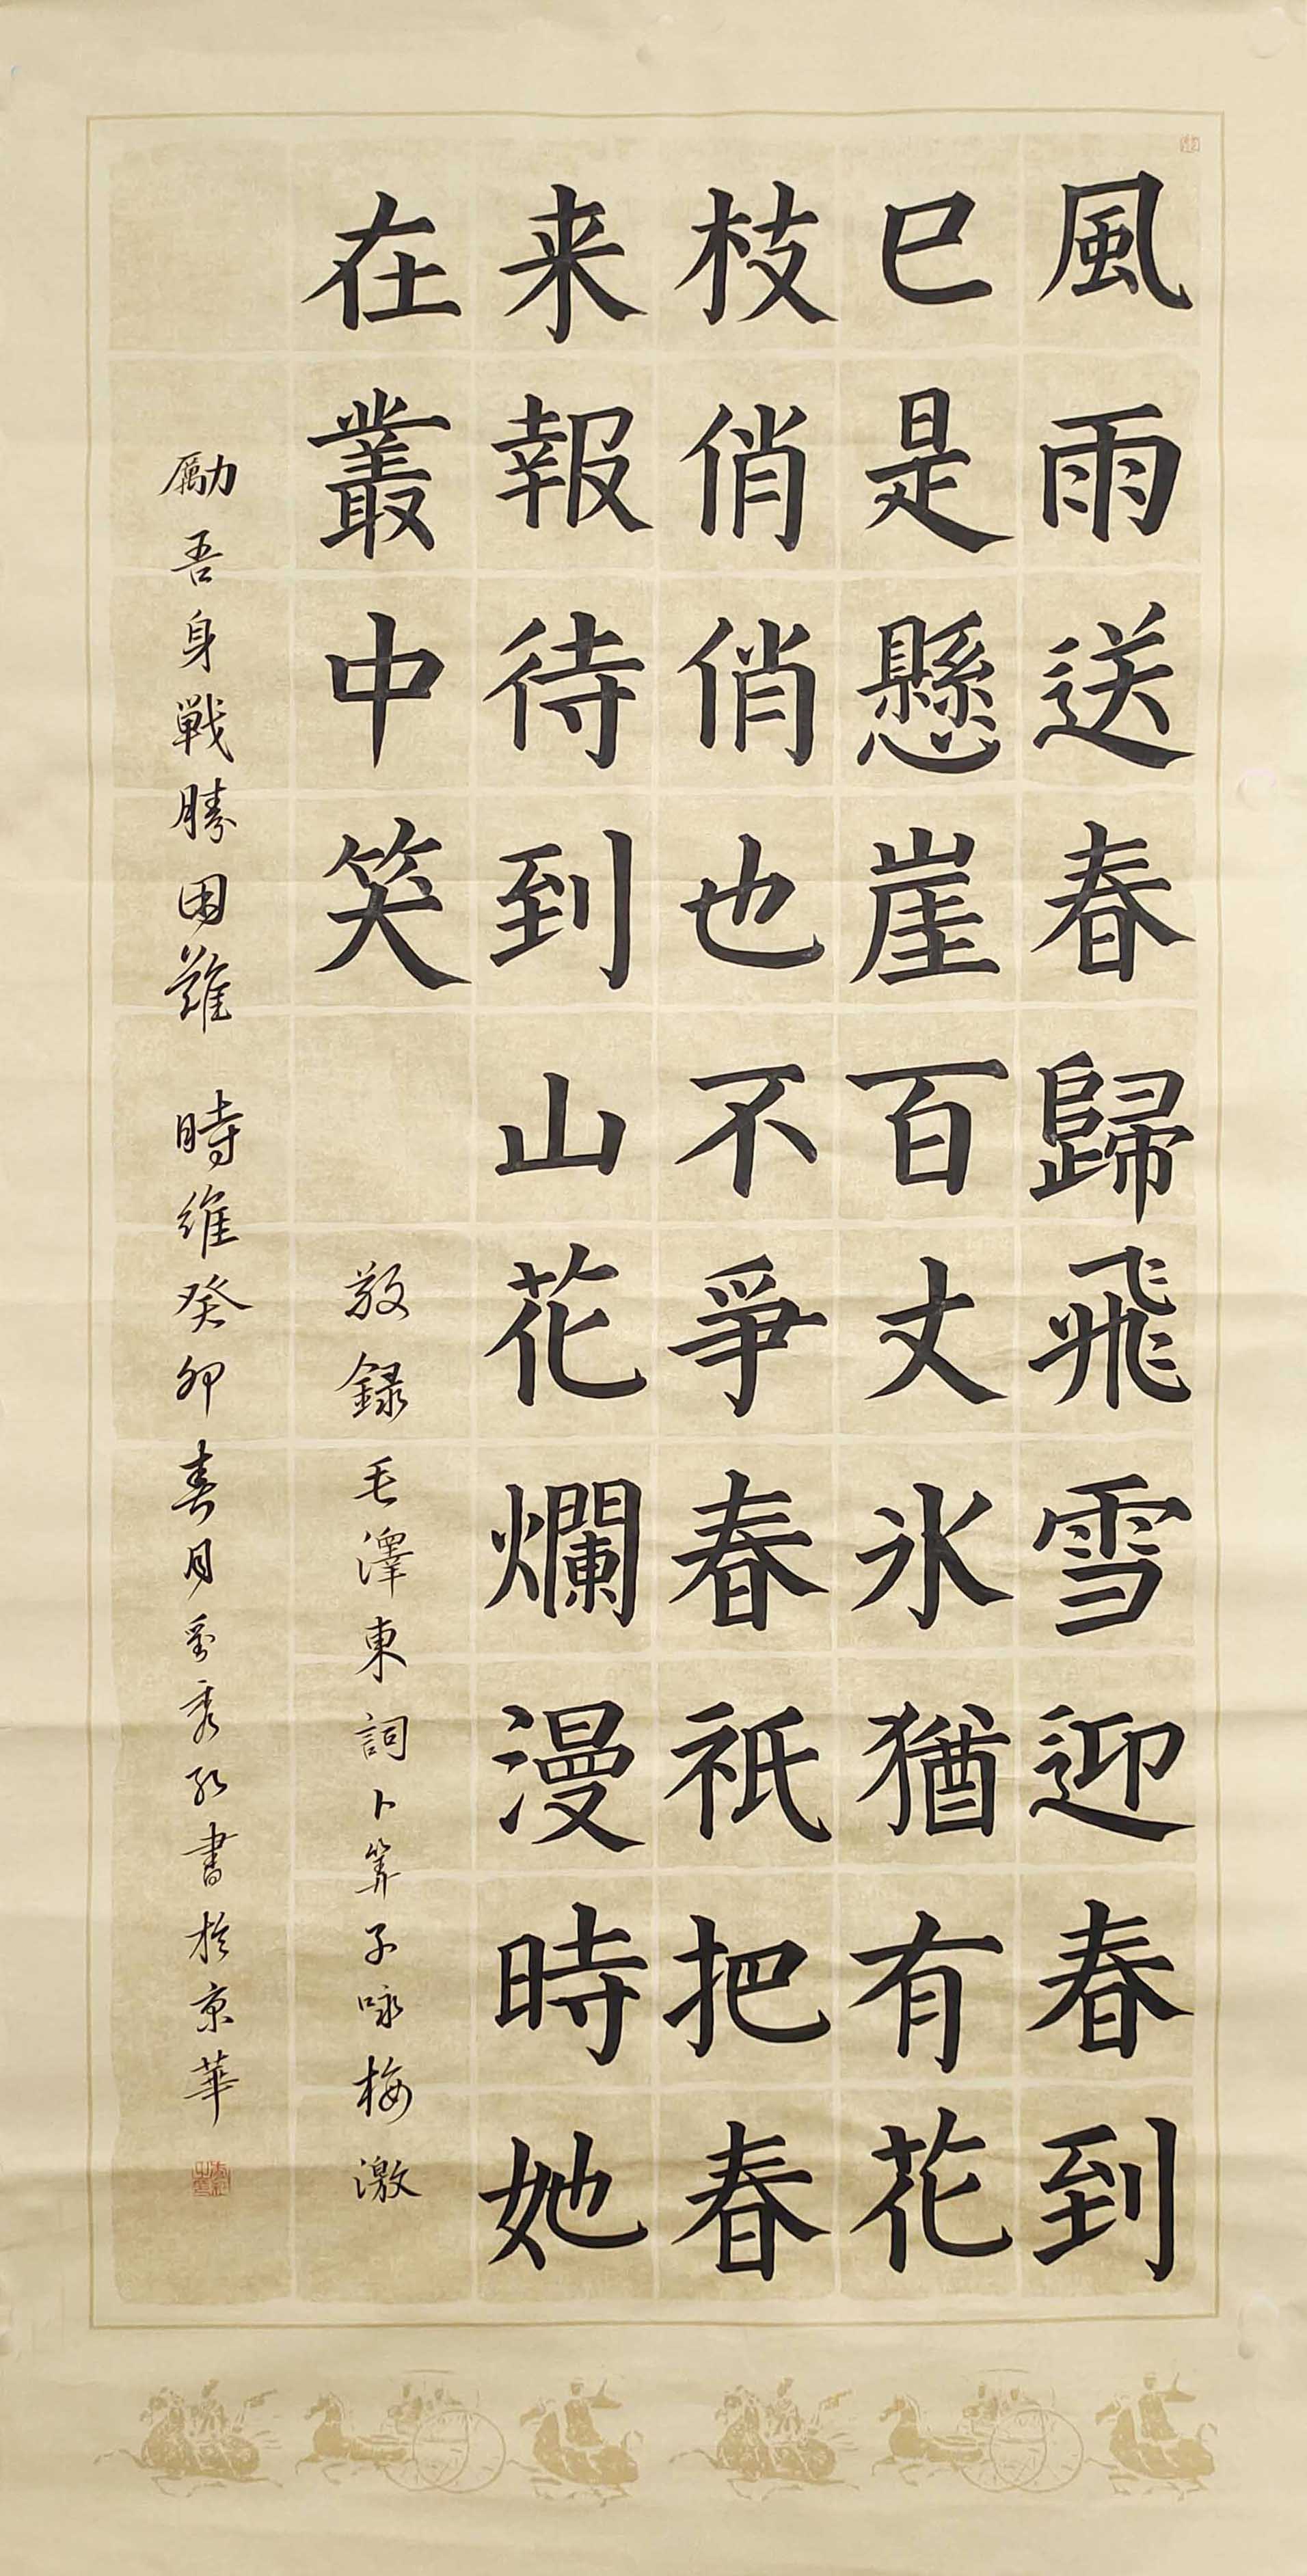 風雨送春歸飛雪迎春到
已是懸崖百丈冰猶有花
枝俏俏也不爭春祇把春
来報待到山花爛漫時她
在叢中笑
敬録毛澤東詞卜算子咏梅激
勵吾身戰勝困難 時維癸卯春月 秀 書於京華